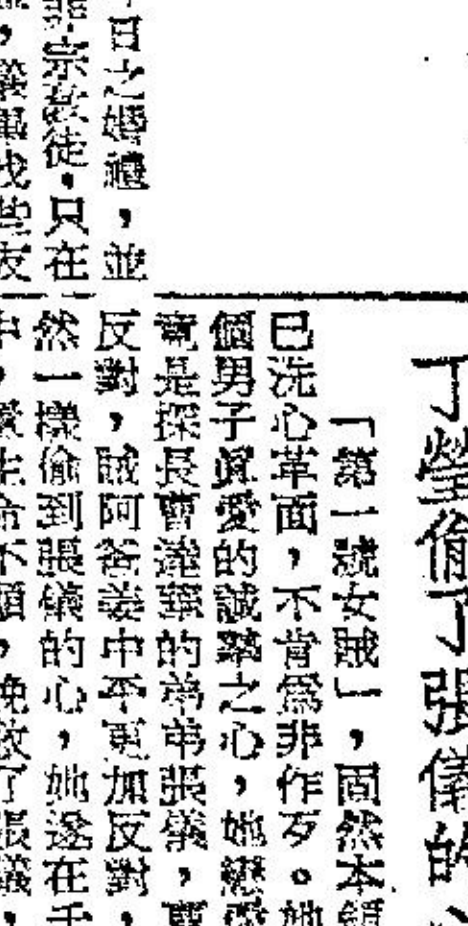 日之婚禮,並
宗教徒,只在
丁瑩偷了張儀的
「第一號女賊」,固然本領
已洗心革面,不肯爲非作歹。她
個男子眞愛的誠摯之心,她戀愛
竟是探長曹達華的弟弟張儀,曹
反對,賊阿爸姜中平更加反對,
然一樣偷到張儀的心,她遂在千
不顧,挽救了張儀,